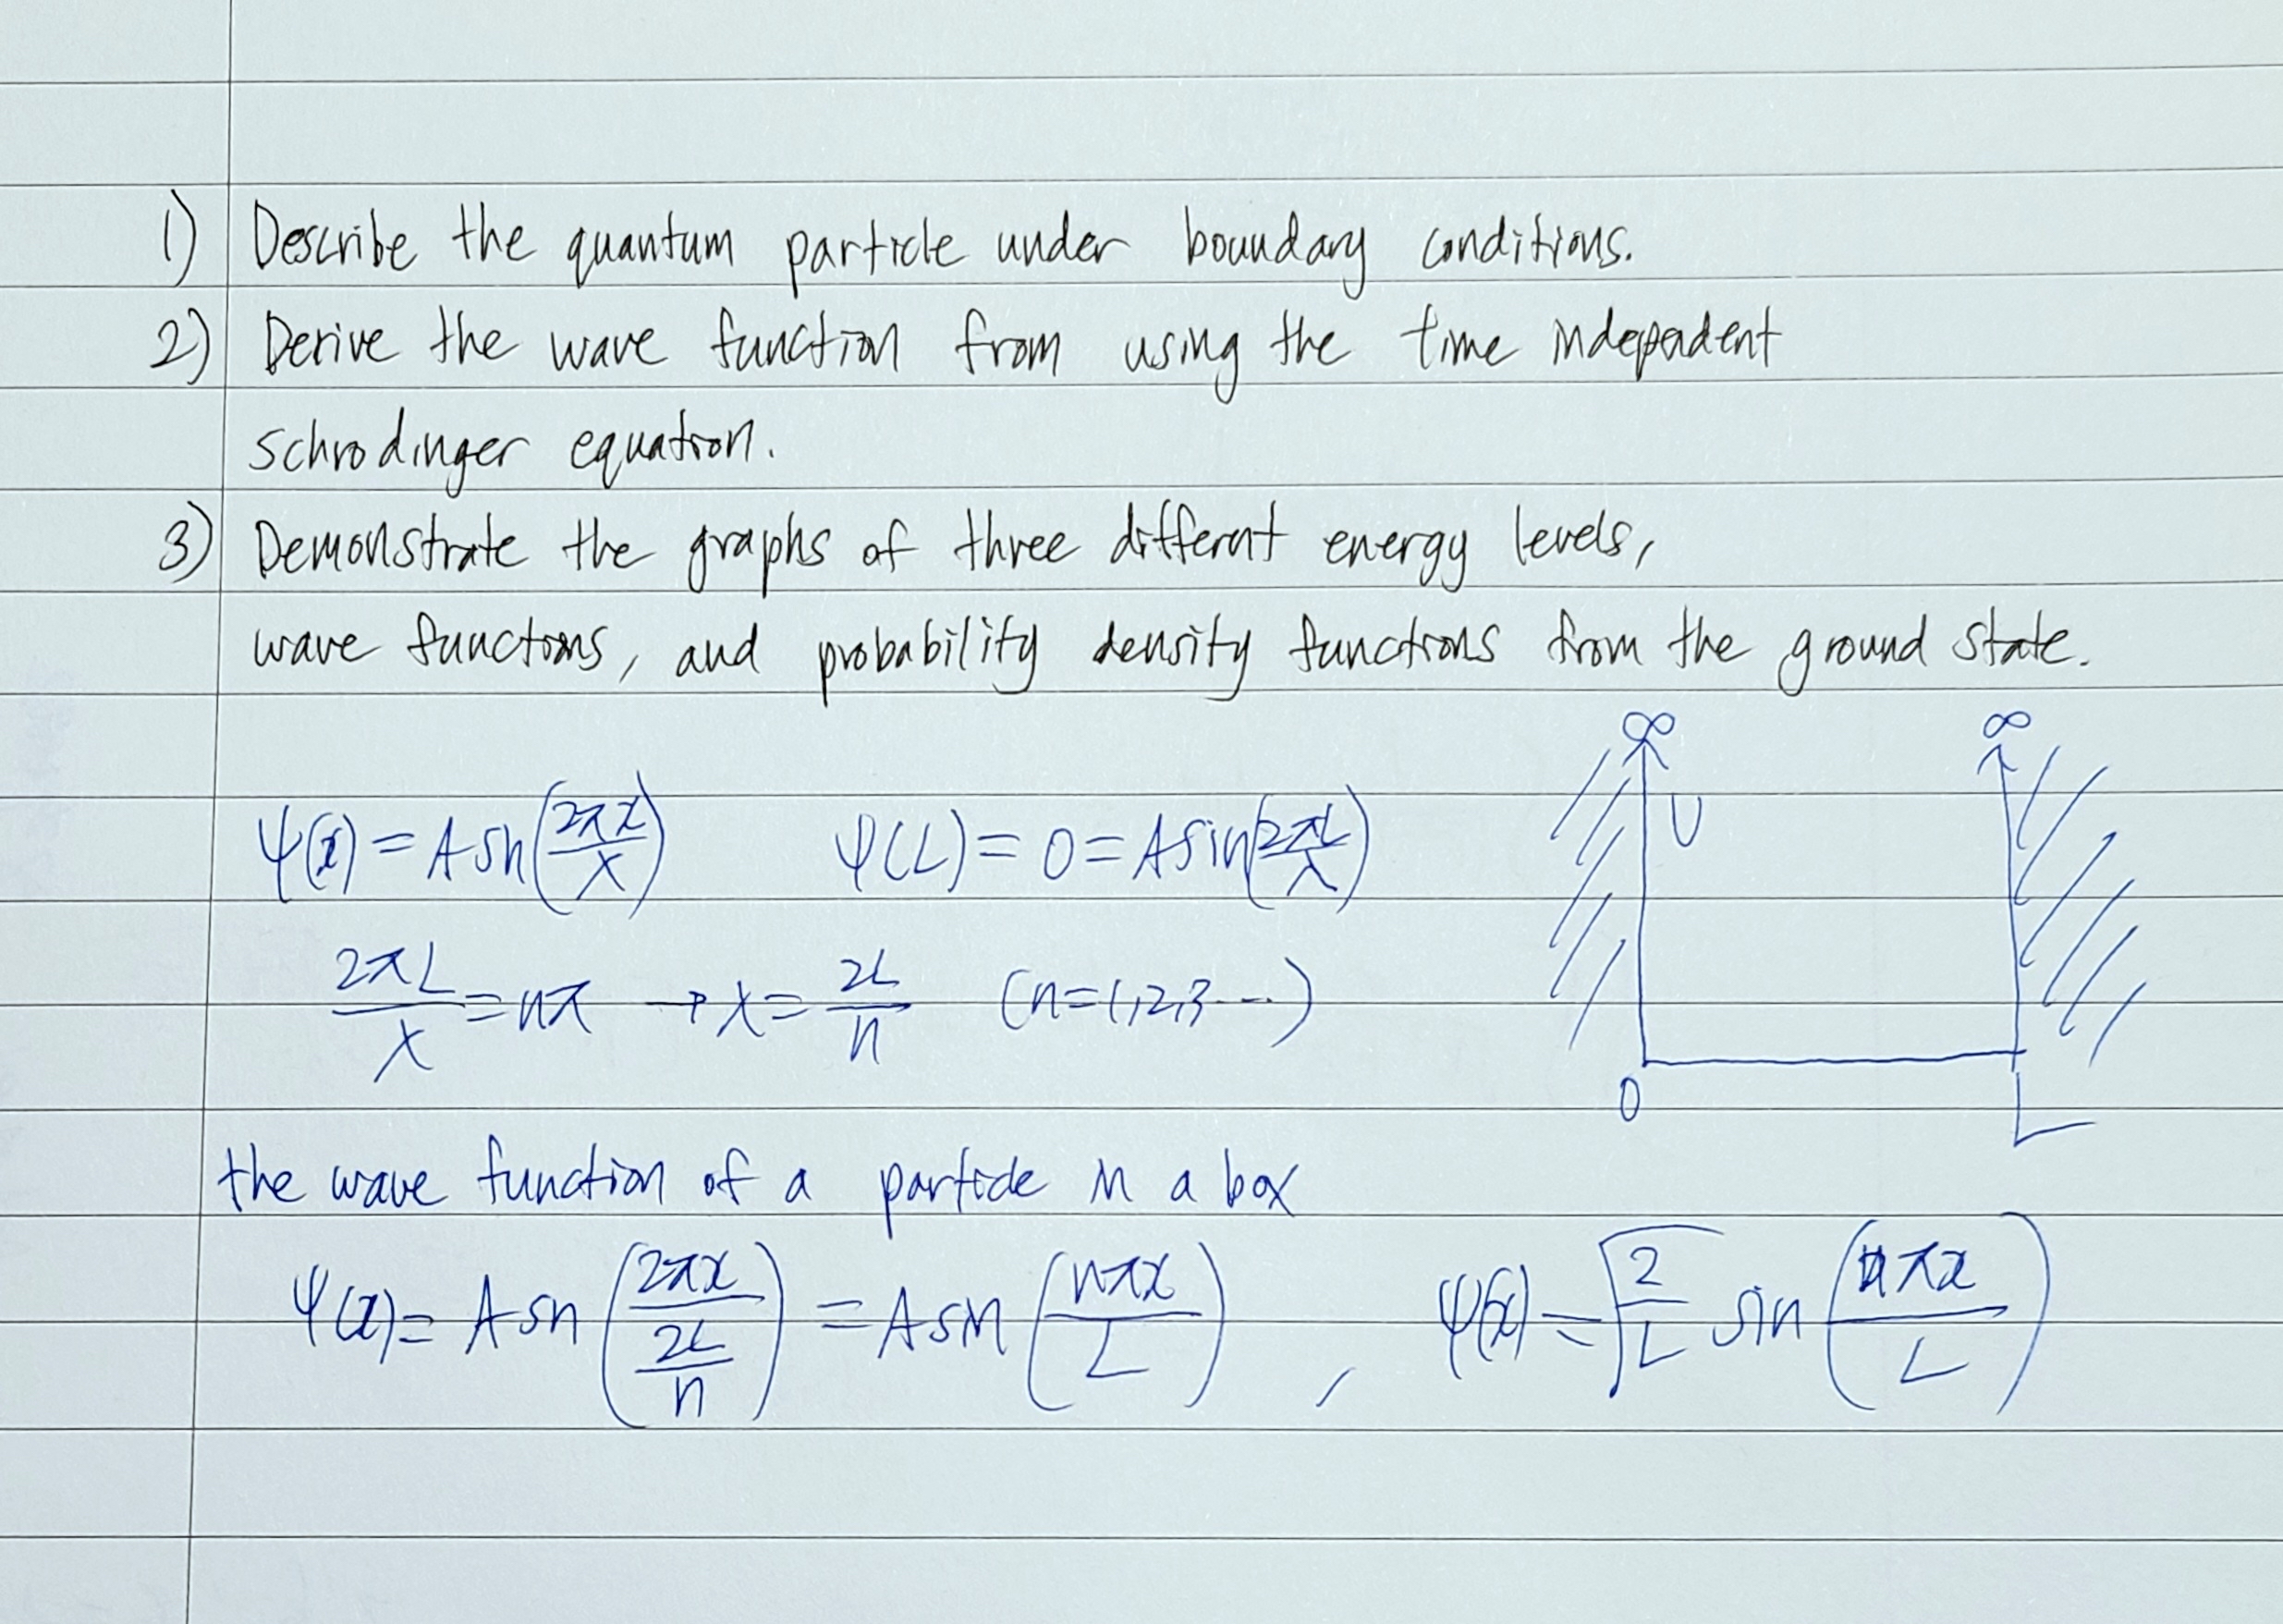 1) Describe the quantum particle under boundary conditions.
2) Derive the wave function from using the time independent
schrodinger equation.
3) Demonstrate the graphs of three different energy levels,
wave functions, and probability density functions from the ground state.
∞ ∞
U
ψ(x) = A sin(2πx/λ) ψ(L) = 0 = A sin(2πL/λ)
2πL/λ = nπ → λ = 2L/n (n=1,2,3...)
0 L
the wave function of a particle in a box
ψ(x) = A sin(2πx/(2L/n)) = A sin(nπx/L) , ψ(x) = √(2/L) sin(nπx/L)